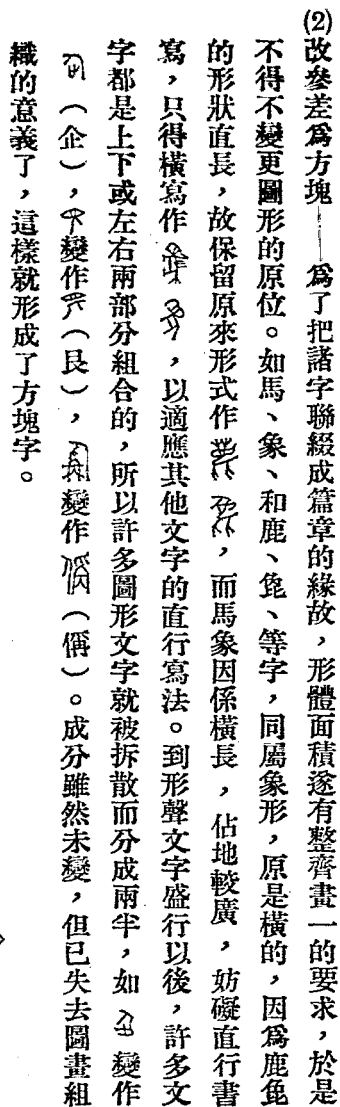 (2)改參差爲方塊——爲了把諸字聯綴成篇章的緣故，形體面積遂有整齊畫一的要求，於是
不得不變更圖形的原位。如馬、象、和鹿、㲋、等字，同屬象形，原是橫的，因爲鹿㲋
的形狀直長，故保留原來形式作，而馬象因係橫長，佔地較廣，妨礙直行書
寫，只得橫寫作，以適應其他文字的直行寫法。到形聲文字盛行以後，許多文
字都是上下或左右兩部分組合的，所以許多圖形文字就被拆散而分成兩半，如變作
（企），變作（艮），變作（偁）。成分雖然未變，但已失去圖畫組
織的意義了，這樣就形成了方塊字。